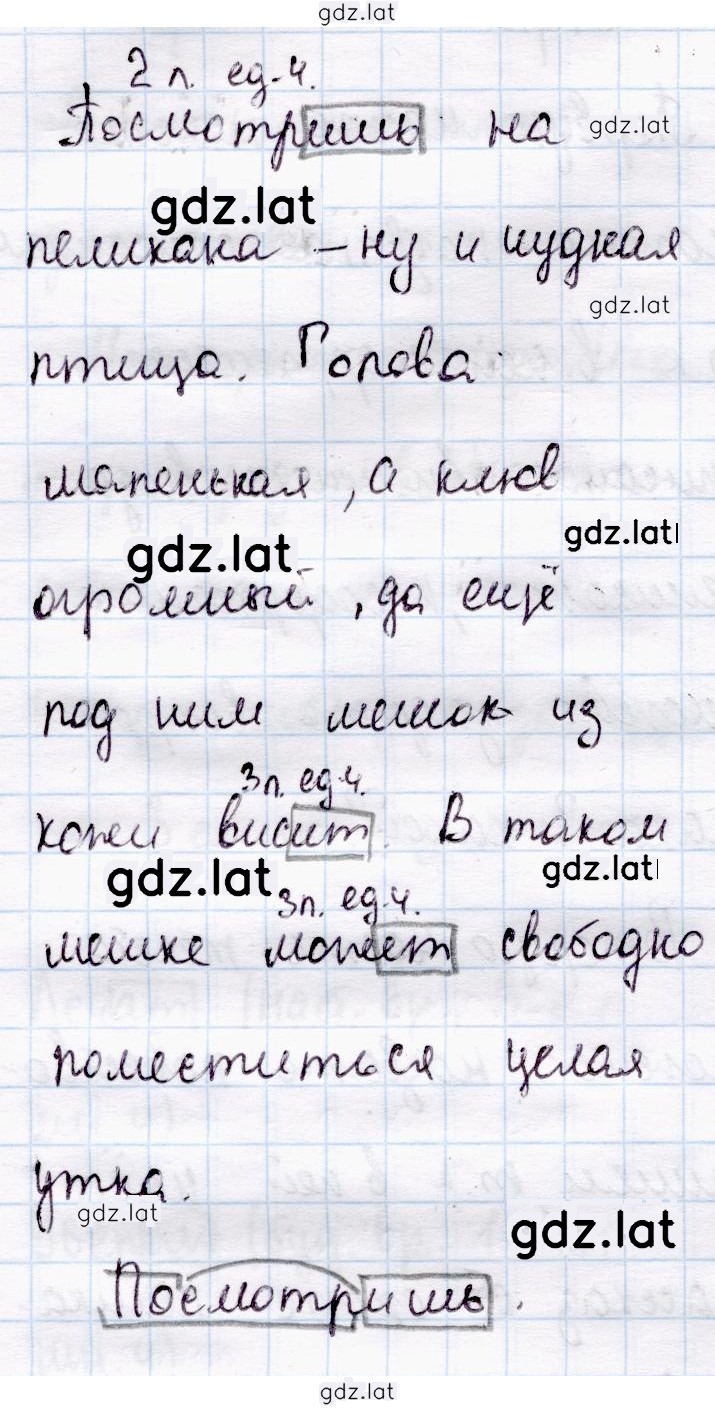 gdz.lat
2 л. ед.ч.
Посмотришь на
gdz.lat
gdz.lat
пеликана – ну и чудная
gdz.lat
птица. Голова
маленькая, а клюв
gdz.lat
gdz.lat
огромный, да ещё
под ним мешок из
3 л. ед.ч.
кожи висит. В таком
gdz.lat
gdz.lat
3 л. ед.ч.
мешке может свободно
поместиться целая
утка.
gdz.lat
gdz.lat
Посмотришь.
gdz.lat